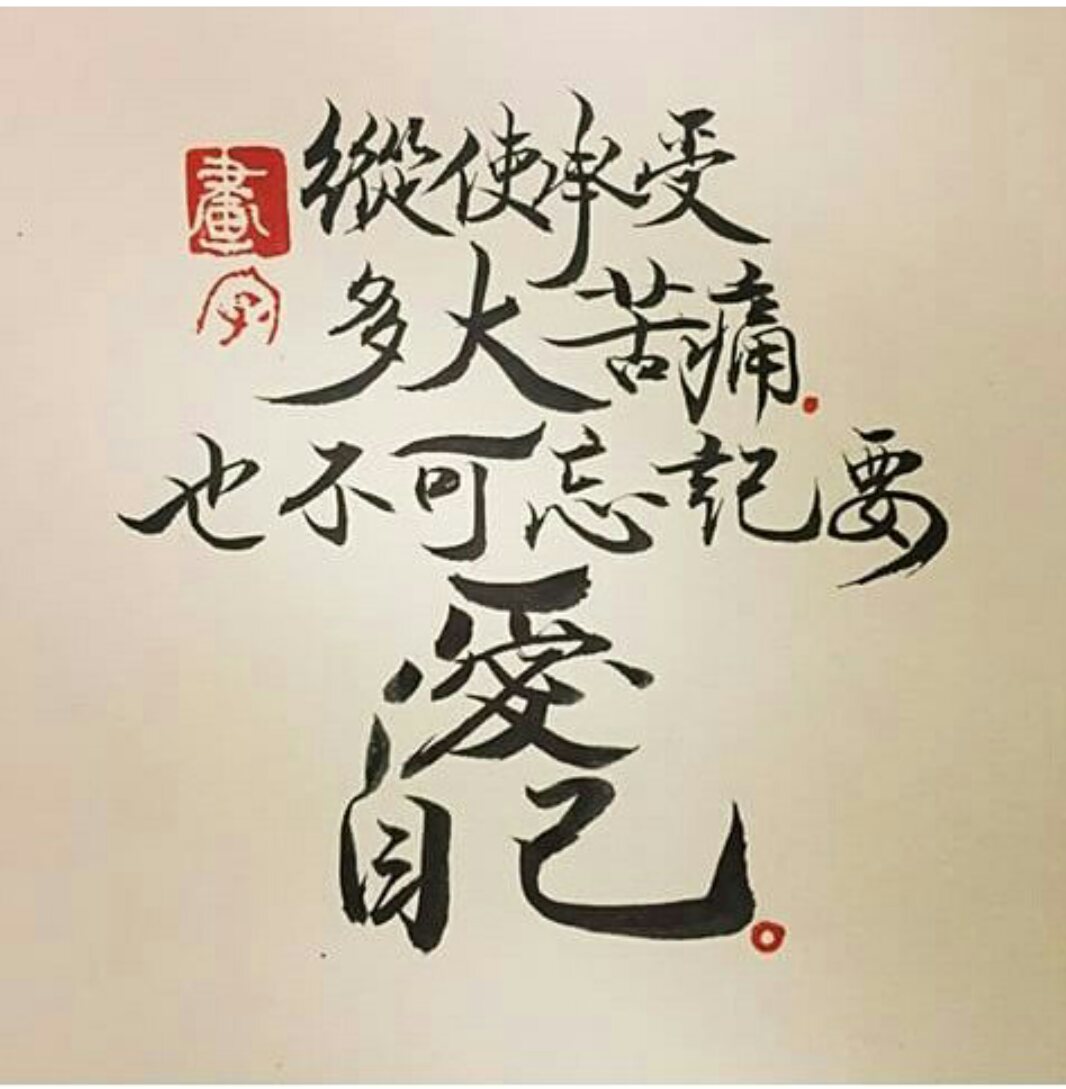 縱使承受
多大苦痛.
也不可忘記要
愛
自己。
畫